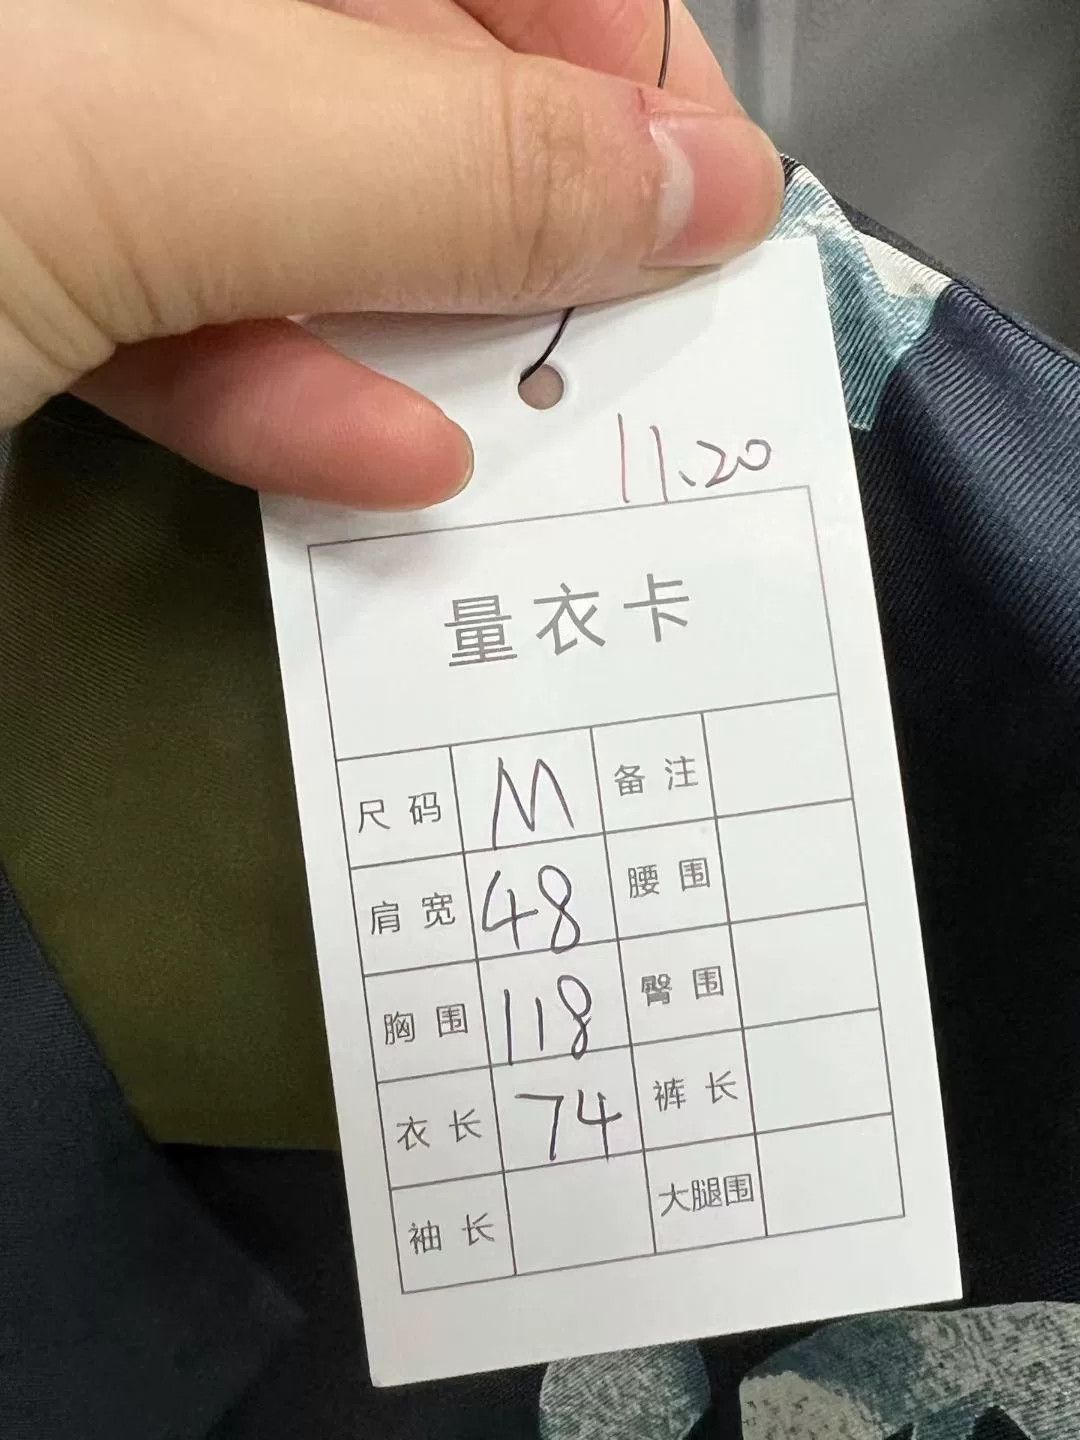 11、20
量衣卡
尺码 M 备注
肩宽 48 腰围
胸围 118 臀围
衣长 74 裤长
袖长 大腿围